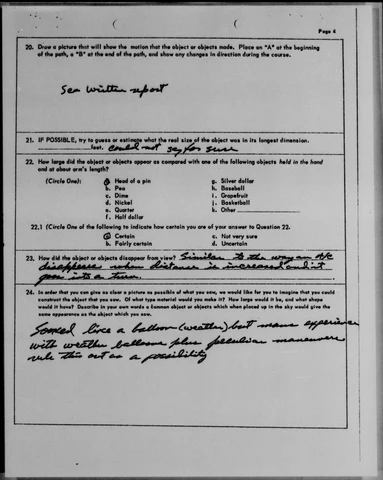 Page 4
20. Draw a picture that will show the motion that the object or objects made. Place an "A" at the beginning
of the path, a "B" at the end of the path, and show any changes in direction during the course.
See written report
21. IF POSSIBLE, try to guess or estimate what the real size of the object was in its longest dimension.
feet. could not say for sure
22. How large did the object or objects appear as compared with one of the following objects held in the hand
and at about arm's length?
(Circle One): a. Head of a pin g. Silver dollar
b. Pea h. Baseball
c. Dime i. Grapefruit
d. Nickel j. Basketball
e. Quarter k. Other
f. Half dollar
22.1 (Circle One of the following to indicate how certain you are of your answer to Question 22.
a. Certain c. Not very sure
b. Fairly certain d. Uncertain
23. How did the object or objects disappear from view? Similar to the way an A/c
disappears when distance is increased and it
goes into a turn.
24. In order that you can give as clear a picture as possible of what you saw, we would like for you to imagine that you could
construct the object that you saw. Of what type material would you make it? How large would it be, and what shape
would it have? Describe in your own words a common object or objects which when placed up in the sky would give the
same appearance as the object which you saw.
Looked like a balloon (weather) but mans experience
with weather balloons plus peculiar maneuvers
rule this out as a possibility